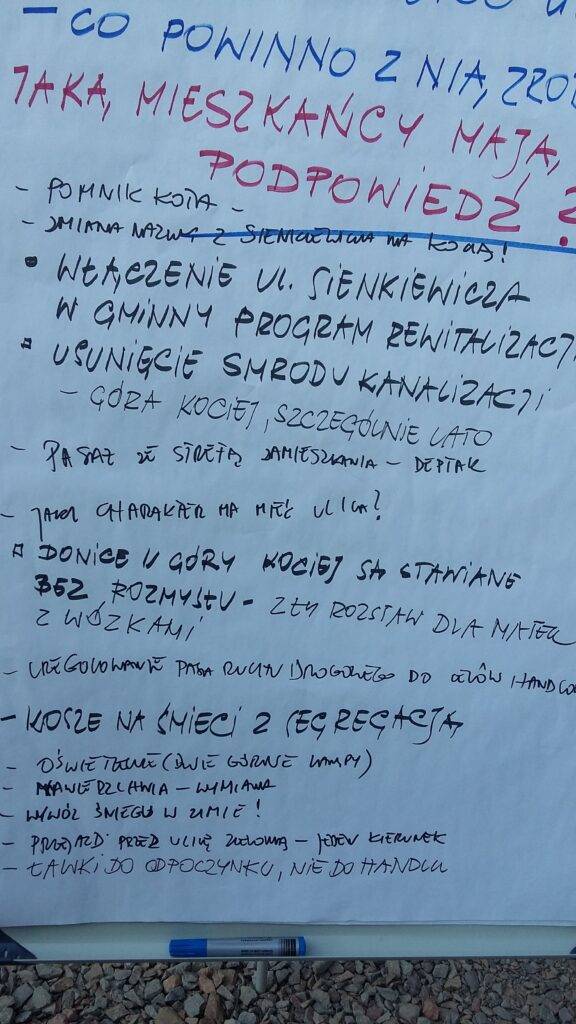 - CO POWINNO Z NIĄ ZRO
JAKĄ MIESZKAŃCY MAJĄ
PODPOWIEDŹ ?
- POMNIK KOTA -
- ZMIANA NAZWY Z SIENKIEWICZA NA KOCIĄ!
• WŁĄCZENIE UL. SIENKIEWICZA
W GMINNY PROGRAM REWITALIZACJI
▫ USUNIĘCIE SMRODU KANALIZACJI
- GÓRA KOCIEJ, SZCZEGÓLNIE LATO
- PASAŻ ZE STREFĄ ZAMIESZKANIA - DEPTAK
- JAKI CHARAKTER MA MIEĆ ULICA?
▫ DONICE U GÓRY KOCIEJ SĄ STAWIANE
BEZ ROZMYSŁU - ZŁY ROZSTAW DLA MATEK
Z WÓZKAMI
- UREGULOWANIE PASA RUCHU DROGOWEGO DO CELÓW HANDLO
- KOSZE NA ŚMIECI Z SEGREGACJĄ
- OŚWIETLENIE (DWIE GÓRNE LAMPY)
- NAWIERZCHNIA - WYMIANA
- WYWÓZ ŚNIEGU W ZIMIE!
- PRZEJAZD PRZED ULICĘ - JEDEN KIERUNEK
- ŁAWKI DO ODPOCZYNKU, NIE DO HANDLU